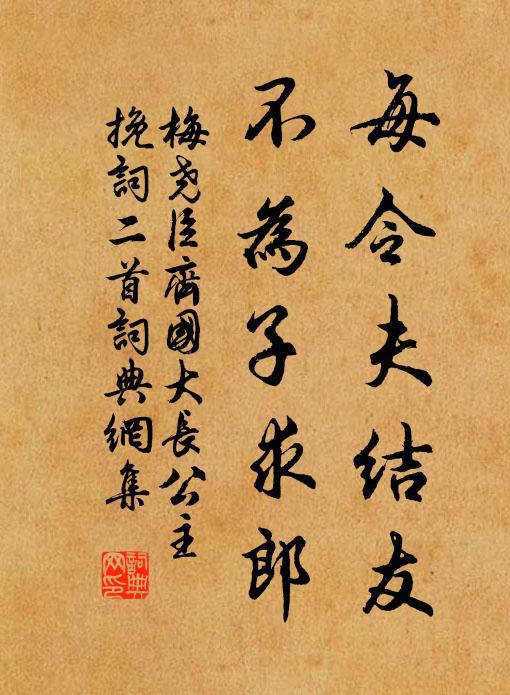 每令夫结友
不為子求郎
梅尧臣齊國大長公主
挽詞二首詞典網集
詞典
网印